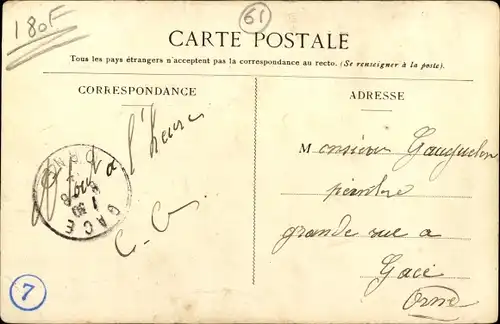 180F
61
CARTE POSTALE
Tous les pays étrangers n'acceptent pas la correspondance au recto. (Se renseigner à la poste).
CORRESPONDANCE
ADRESSE
à l'heure
C. G.
GACE
ORNE
Monsieur Gauquelin
peintre
grande rue a
Gacé
Orne
7